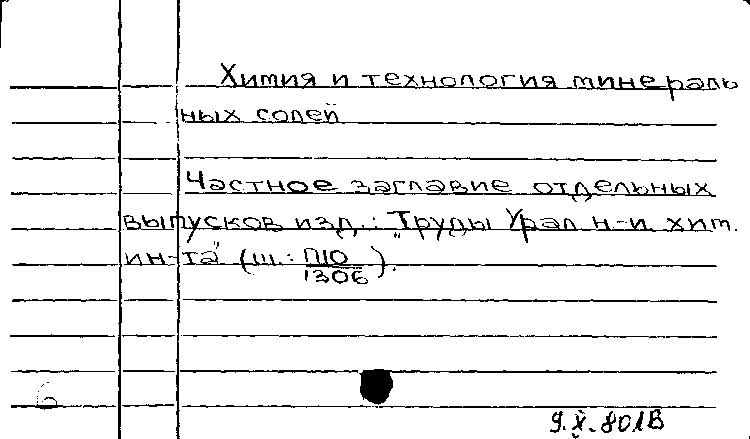 Химия и технология минераль
ных солей
Частное заглавие отдельных
выпусков изд.: "Труды Урал. н-и. хим.
ин-та" (ш.: П10/1306).
6
9.X.80